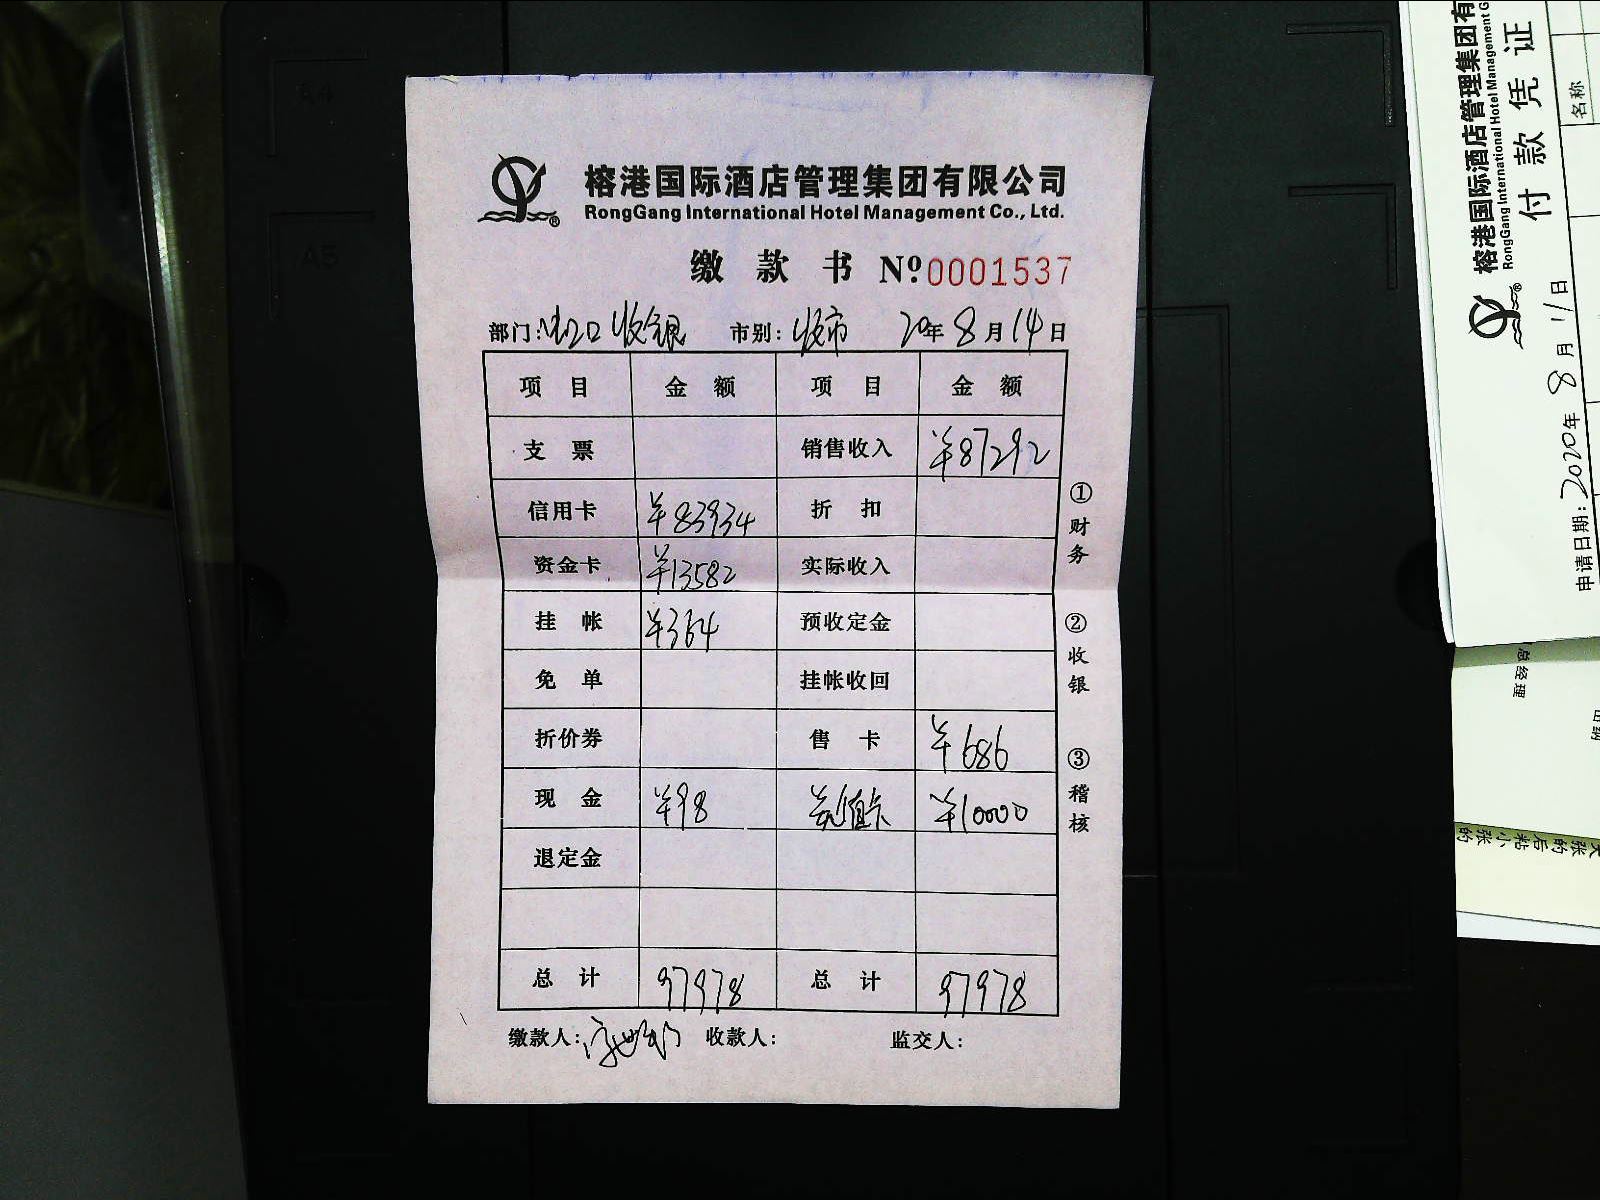 榕港国际酒店管理集团有限公司
RongGang International Hotel Management Co., Ltd.
缴款书 Nº 0001537
部门: 出口收银 市别: 收市 20年8月14日
项目 金额 项目 金额
支票 销售收入 ¥87292
信用卡 ¥83934 折扣
资金卡 ¥13582 实际收入
挂帐 ¥364 预收定金
免单 挂帐收回
折价券 售卡 ¥686
现金 ¥98 充值卡 ¥10000
退定金
总计 97978 总计 97978
缴款人: 收款人: 监交人:
①财务
②收银
③稽核
A4
A5
榕港国际酒店管理集团有
RongGang International Hotel Management
付款凭证
申请日期: 2020年8月11日
名称
总经理
张的后粘小张的